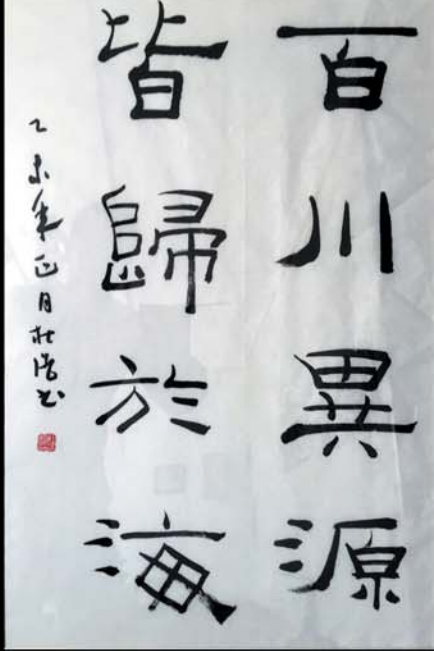 百川異源
皆歸於海
乙未年正月杜浩书